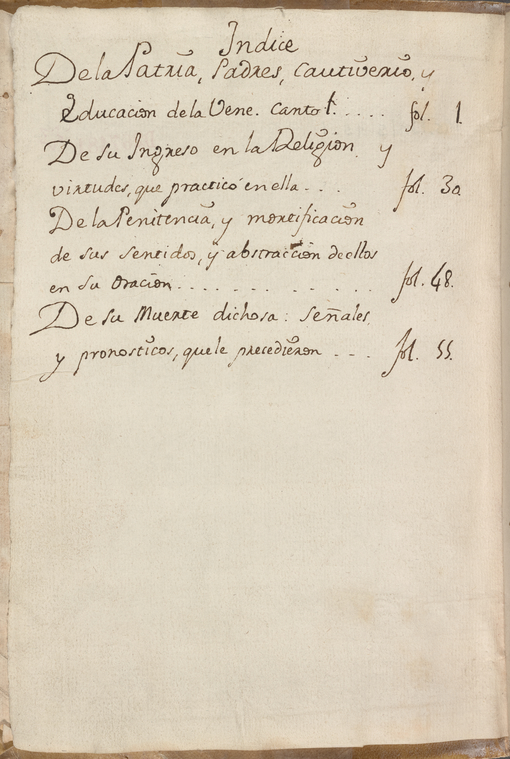 Indice
De la Patria, Padres, Cautiverio, y
Educacion de la Vene. Canto 1. . . . . fol. 1.
De su Ingreso en la Religion y
virtudes, que practicó en ella . . . fol. 30
De la Penitencia, y mortificacion
de sus sentidos, y abstraccion de ellos
en su oracion. . . . . . . . . . . fol. 48.
De su Muerte dichosa: señales
y pronosticos, que le precedieron . . . fol. 55.